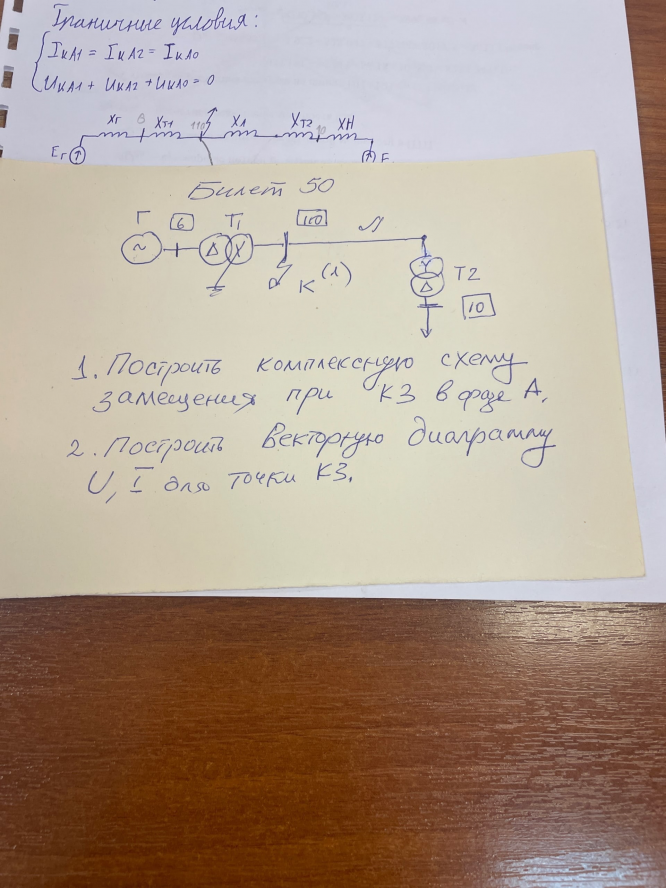 Граничные условия:
IкА1 = IкА2 = IкА0
UкА1 + UкА2 + UкА0 = 0
XГ 6 XТ1 110 XЛ XТ2 10 XН
EГ E
Билет 50
Г 6 Т1 110 Л
К(1) Т2
10
1. Построить комплексную схему
замещения при КЗ в фазе А.
2. Построить векторную диаграмму
U, I для точки КЗ.